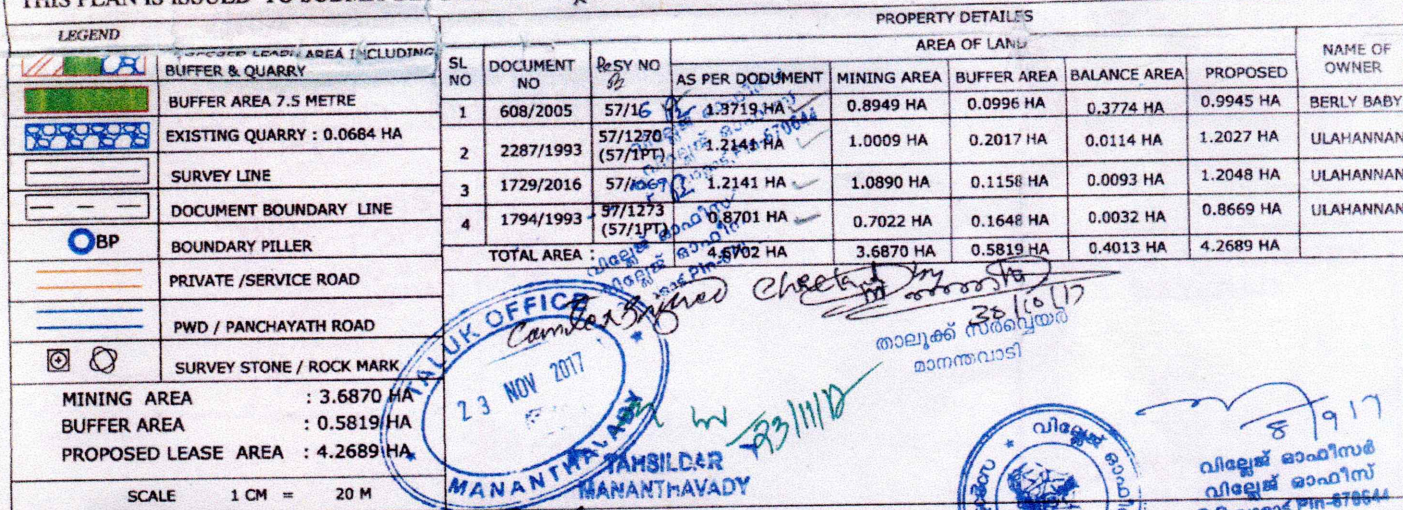 THIS PLAN IS ISSUED TO SUBMIT
LEGEND
BUFFER & QUARRY
BUFFER AREA 7.5 METRE
EXISTING QUARRY : 0.0684 HA
SURVEY LINE
DOCUMENT BOUNDARY LINE
BP BOUNDARY PILLER
PRIVATE /SERVICE ROAD
PWD / PANCHAYATH ROAD
SURVEY STONE / ROCK MARK
MINING AREA : 3.6870 HA
BUFFER AREA : 0.5819 HA
PROPOSED LEASE AREA : 4.2689 HA
SCALE 1 CM = 20 M
PROPERTY DETAILES
AREA OF LAND
SL NO DOCUMENT NO ReSY NO AS PER DODUMENT MINING AREA BUFFER AREA BALANCE AREA PROPOSED NAME OF OWNER
1 608/2005 57/16 1.3719 HA 0.8949 HA 0.0996 HA 0.3774 HA 0.9945 HA BERLY BABY
2 2287/1993 57/1270 (57/1PT) 1.2141 HA 1.0009 HA 0.2017 HA 0.0114 HA 1.2027 HA ULAHANNAN
3 1729/2016 1.2141 HA 1.0890 HA 0.1158 HA 0.0093 HA 1.2048 HA ULAHANNAN
4 1794/1993 57/1273 (57/1PT) 0.8701 HA 0.7022 HA 0.1648 HA 0.0032 HA 0.8669 HA ULAHANNAN
TOTAL AREA : 4.6702 HA 3.6870 HA 0.5819 HA 0.4013 HA 4.2689 HA
TALUK OFFICE
23 NOV 2017
MANANTHAVADY
30/10/17
താലൂക്ക് സർവ്വെയർ
മാനന്തവാടി
23/11/17
TAHSILDAR
MANANTHAVADY
വില്ലേജ്
8/9/17
വില്ലേജ് ഓഫീസർ
വില്ലേജ് ഓഫീസ്
Pin-670644